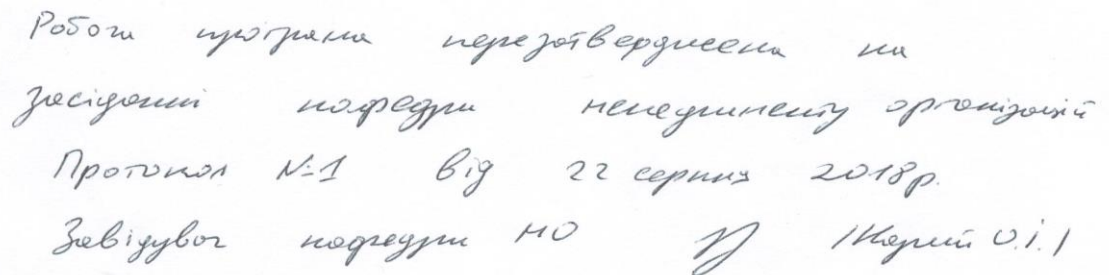 Робоча програма перезатверджена на
засіданні кафедри менеджменту організацій
Протокол №1 від 22 серпня 2018р.
Завідувач кафедри МО /Карий О.І./